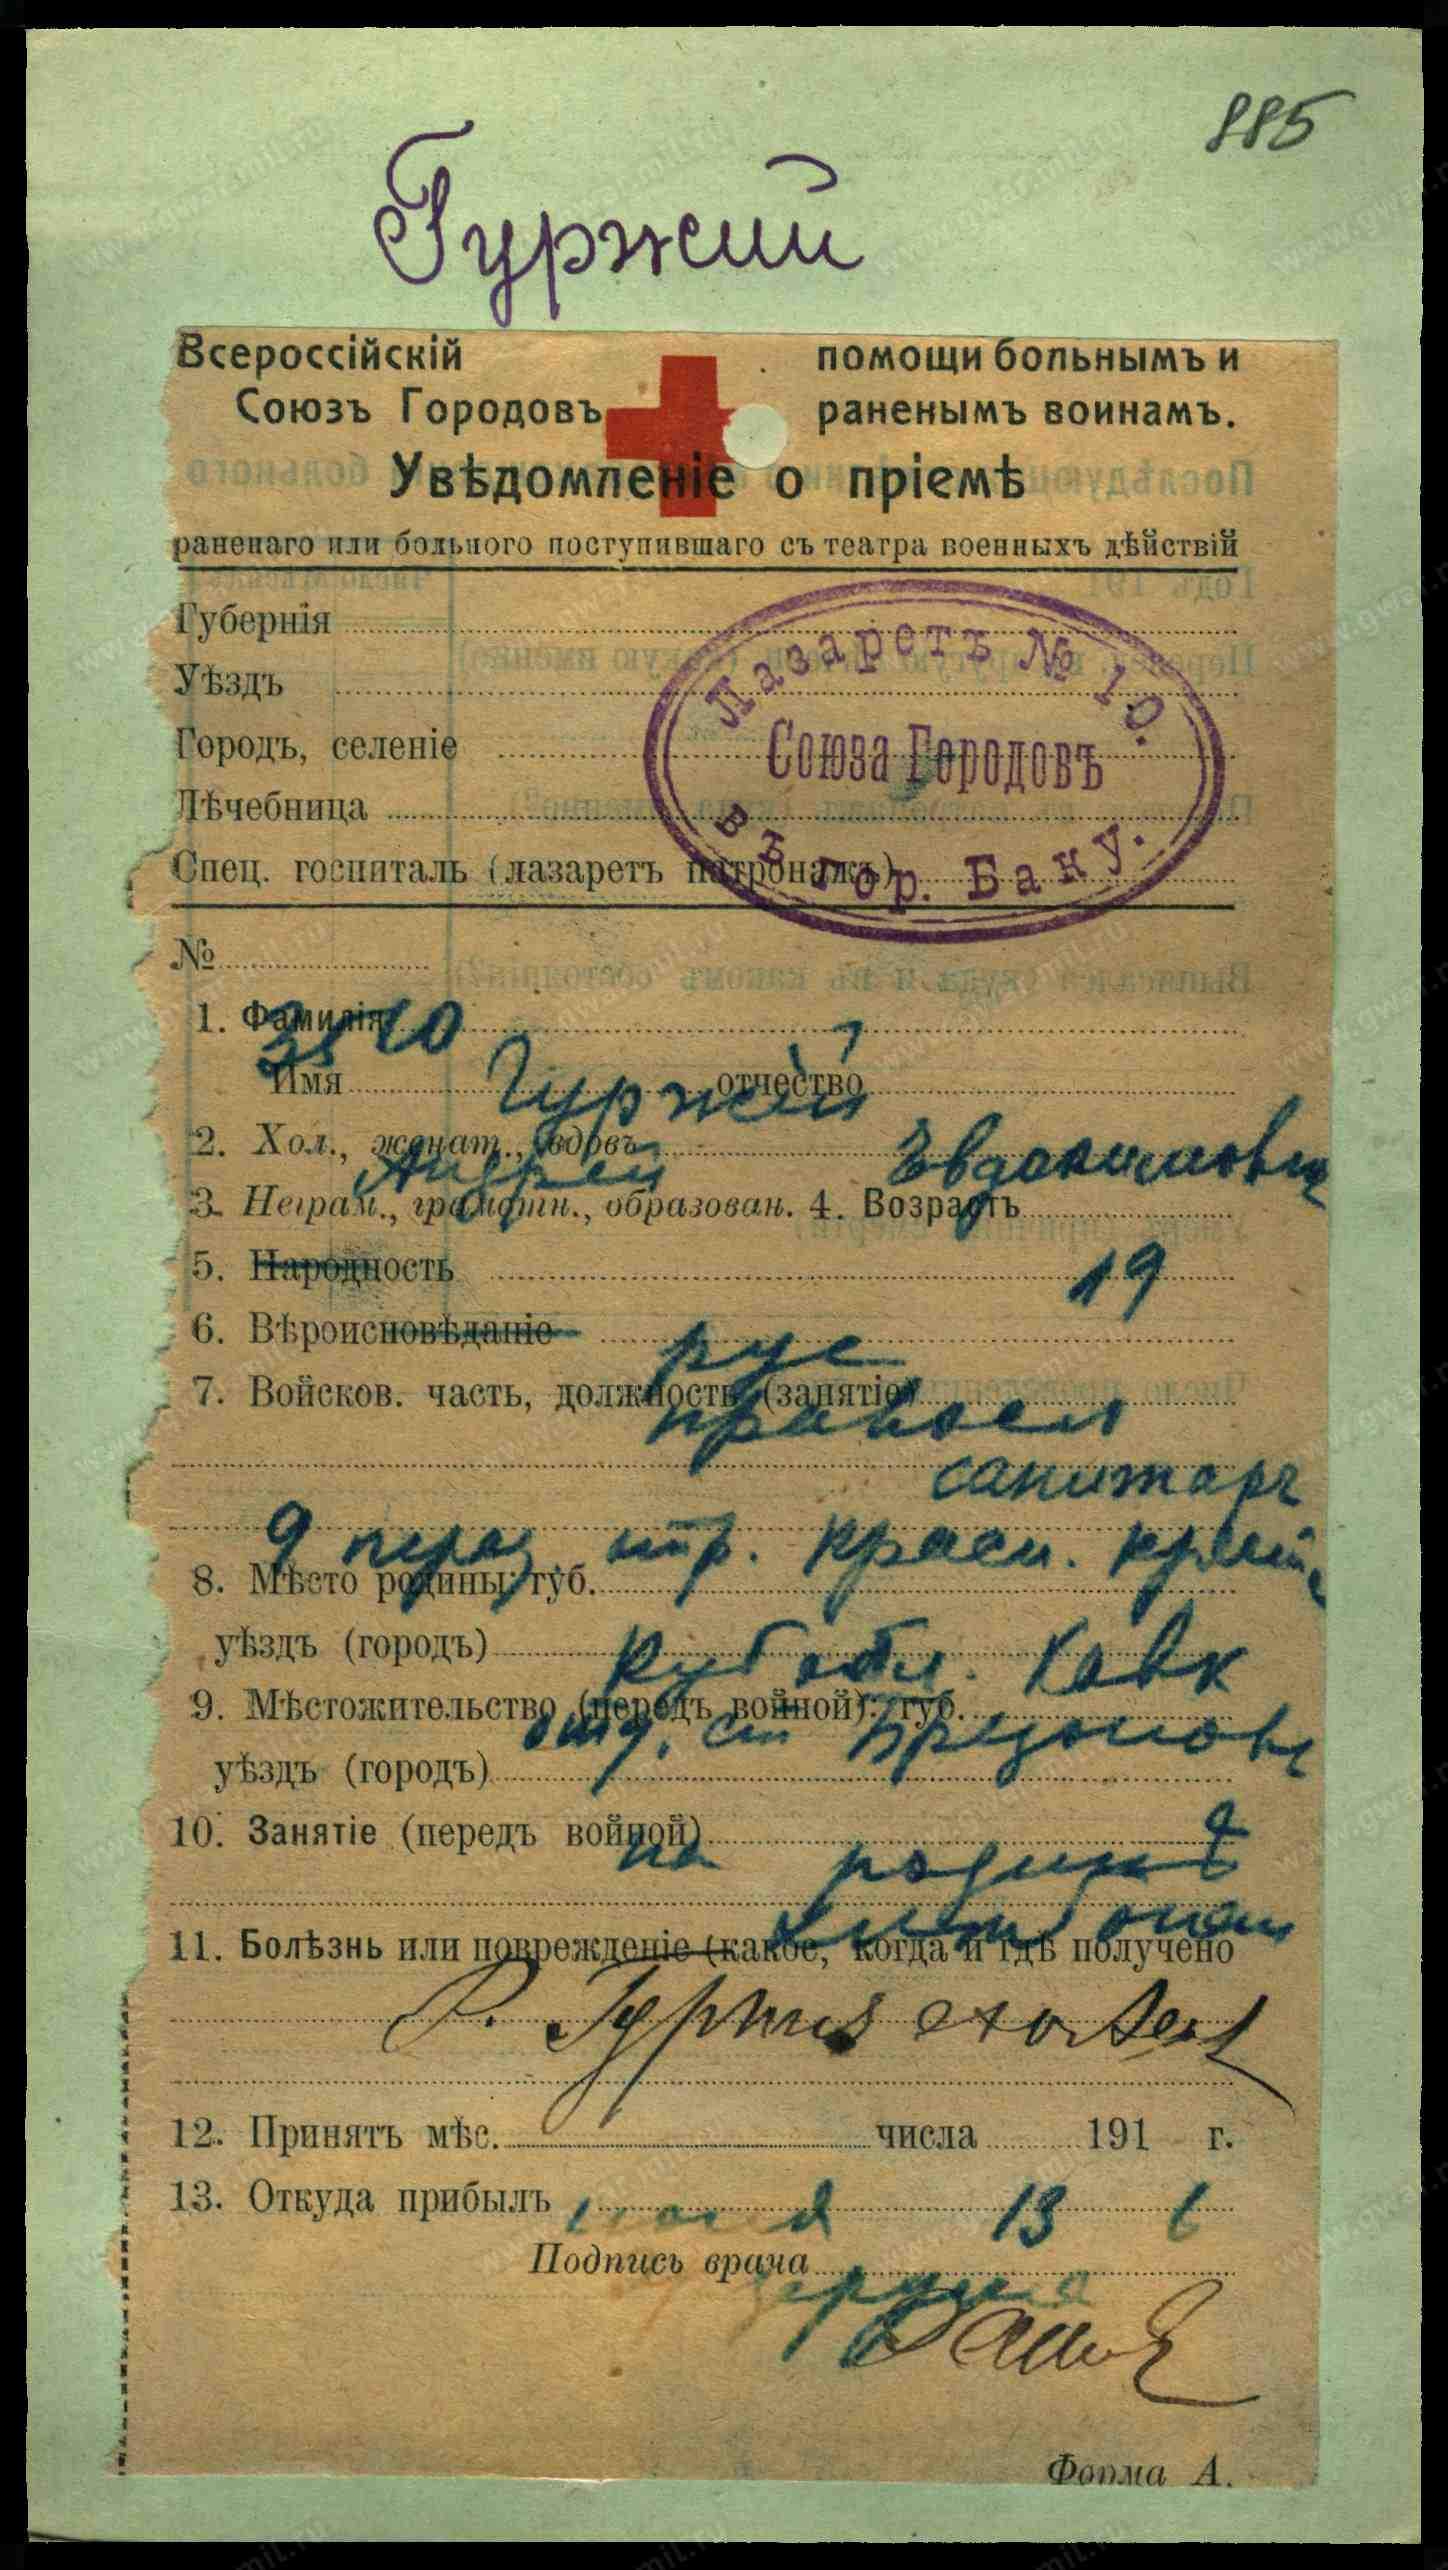 885
Гуржий
Всероссійскій помощи больнымъ и
Союзъ Городовъ раненымъ воинамъ.
Увѣдомленіе о пріемѣ
раненаго или больного поступившаго съ театра военныхъ дѣйствій
Губернія
Уѣздъ
Городъ, селеніе
Лѣчебница
Спец. госпиталь (лазаретъ патронажъ)
Лазаретъ № 10.
Союза Городовъ
въ гор. Баку.
№
1. Фамилія
Имя отчество
Гуржий
2. Хол., женат., вдовъ
Андрей Евдокимовъ
3. Неграм., грамотн., образован. 4. Возрастъ
19
5. Народность
6. Вѣроисповѣданіе
рус
7. Войсков. часть, должность (занятіе)
правосл
санитаръ
9 перед. отр. Красн. Крест
8. Мѣсто родины: губ.
уѣздъ (городъ)
Куб обл. Кавк
9. Мѣстожительство (передъ войной): губ.
отд. ст
уѣздъ (городъ)
10. Занятіе (передъ войной)
на родинѣ
11. Болѣзнь или поврежденіе (какое, когда и гдѣ получено
12. Принятъ мѣс. числа 191 г.
13. Откуда прибылъ
13 6
Подпись врача
Форма А.